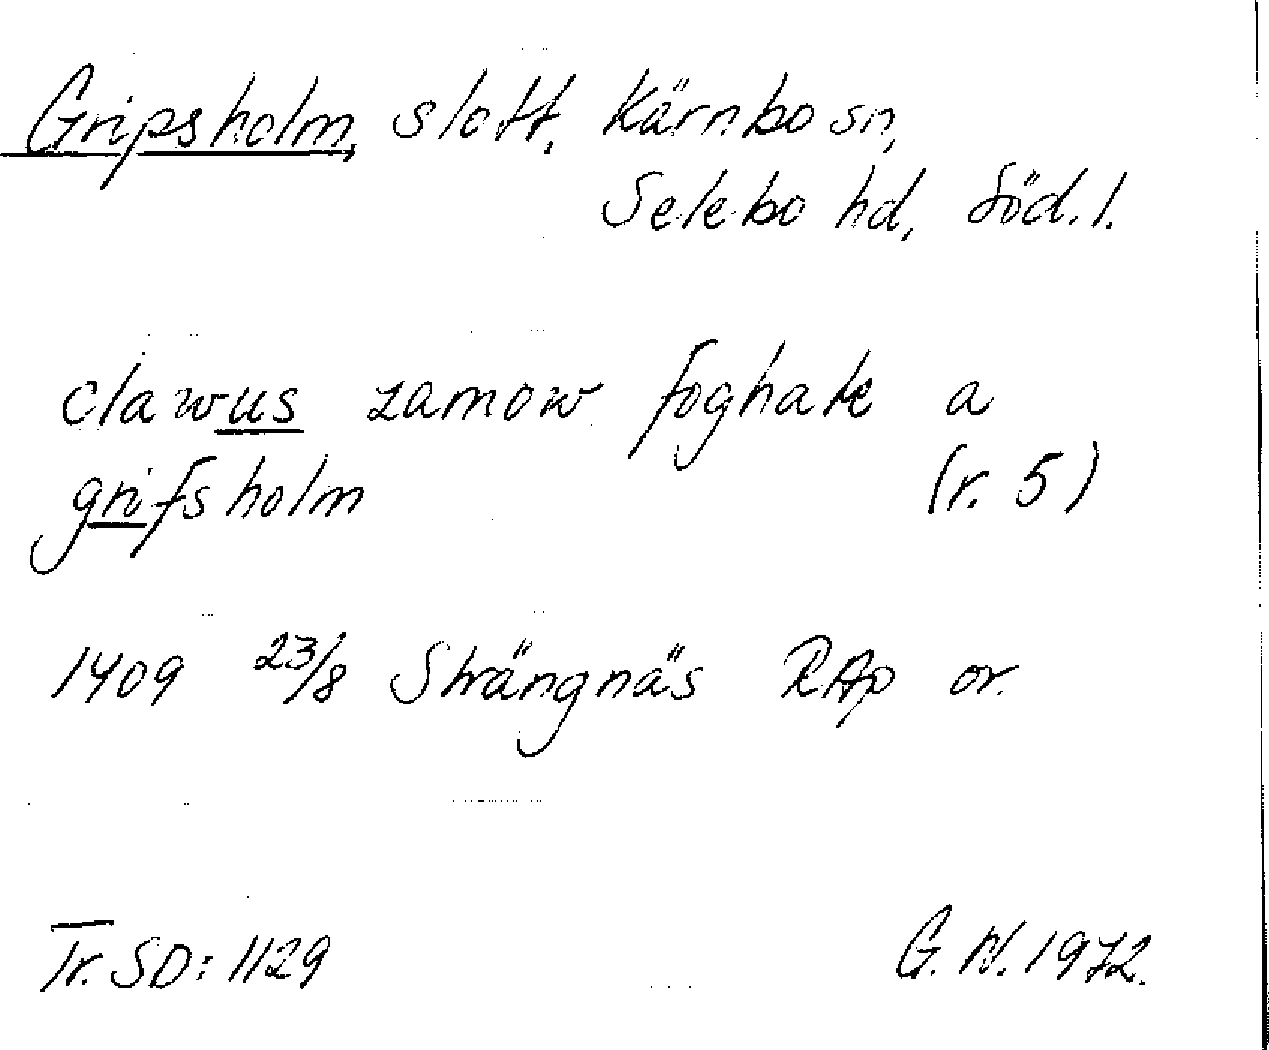 Gripsholm, slott, Kärnbo sn,
Selebo hd, Söd.l.
clawus zamow foghate a
grifsholm (r. 5)
1409 23/8 Strängnäs RAp or.
Tr. SD: 1129 G.W. 1972.